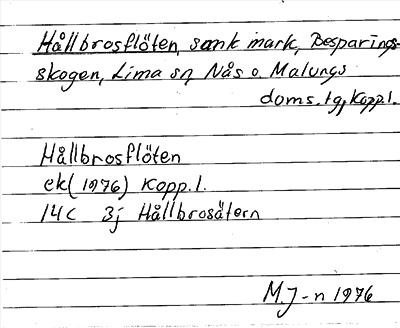 Hållbrosflöten, sank mark, Besparings-
skogen, Lima sn, Nås o. Malungs
doms. tg, Kopp.l.
Hållbrosflöten
ek(1976) Kopp.l.
14C 3j Hållbrosätern
M.J-n 1976